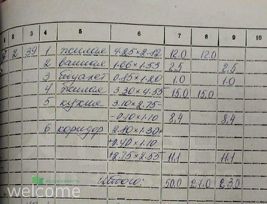 1 2 3 4 5 6 7 8 9 10
2 34 1 жилая 4.25×2.92 12.0 12.0
2 ванная 1.06×1.55 2.5 2.5
3 туалет 0.85×1.20 1.0 1.0
4 жилая 3.30×4.55 15.0 15.0
5 кухня 3.10×2.75-
-0.10×1.10 8.4 8.4
6 коридор 2.80×1.30+
+2.40×1.10
+2.75×2.55 11.1 11.1
Итого: 50.0 27.0 23.0
welcome